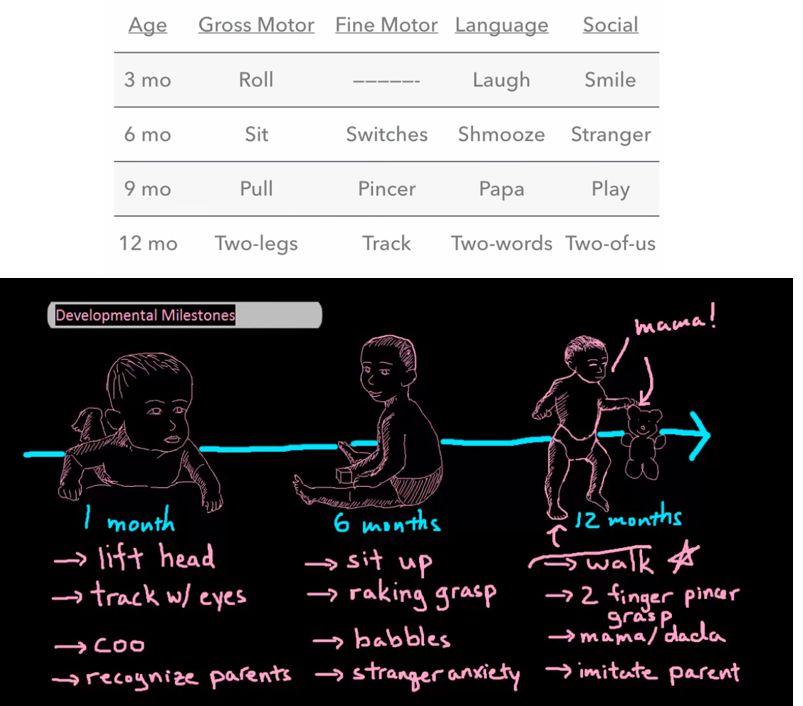 Age Gross Motor Fine Motor Language Social
3 mo Roll –––––- Laugh Smile
6 mo Sit Switches Shmooze Stranger
9 mo Pull Pincer Papa Play
12 mo Two-legs Track Two-words Two-of-us
Developmental Milestones
mama!
1 month
→ lift head
→ track w/ eyes
→ coo
→ recognize parents
6 months
→ sit up
→ raking grasp
→ babbles
→ stranger anxiety
12 months
→ walk ☆
→ 2 finger pincer
grasp
→ mama/dada
→ imitate parent